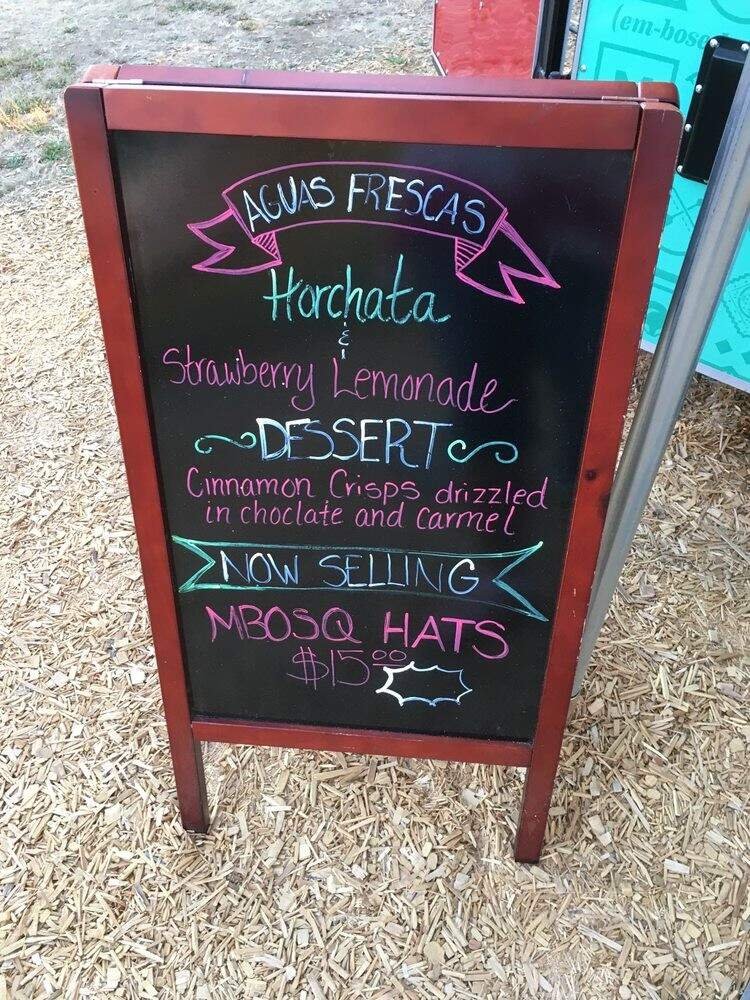 (em-bose
AGUAS FRESCAS
Horchata
&
Strawberry Lemonade
DESSERT
Cinnamon Crisps drizzled
in choclate and carmel
NOW SELLING
MBOSQ HATS
$15.00